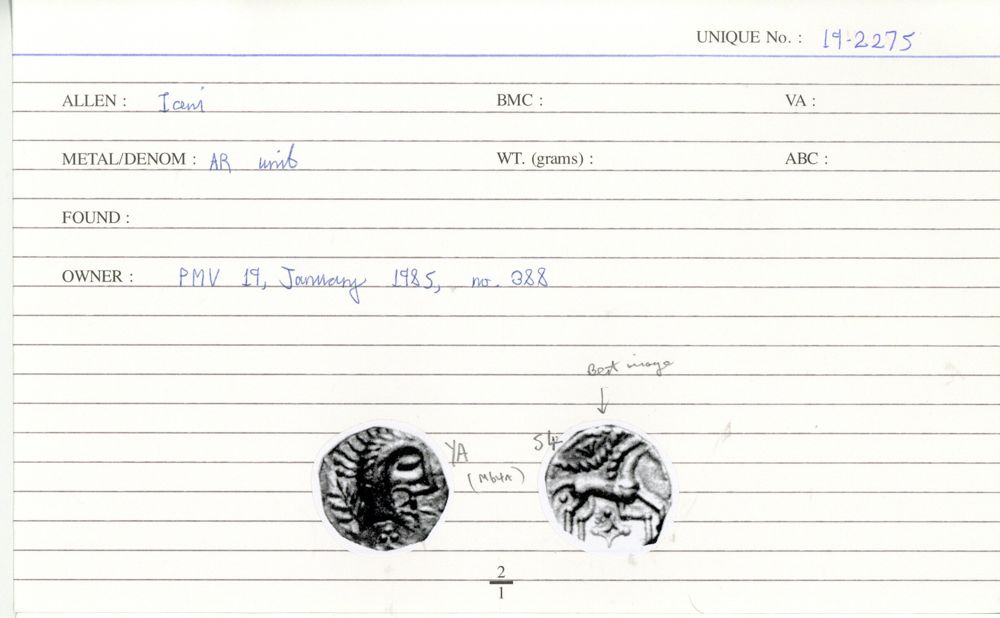 UNIQUE No. : 19-2275
ALLEN : Iceni BMC : VA :
METAL/DENOM : AR unit WT. (grams) : ABC :
FOUND :
OWNER : PMV 19, January 1985, no. 388
Best image
↓
YA 54
2
1